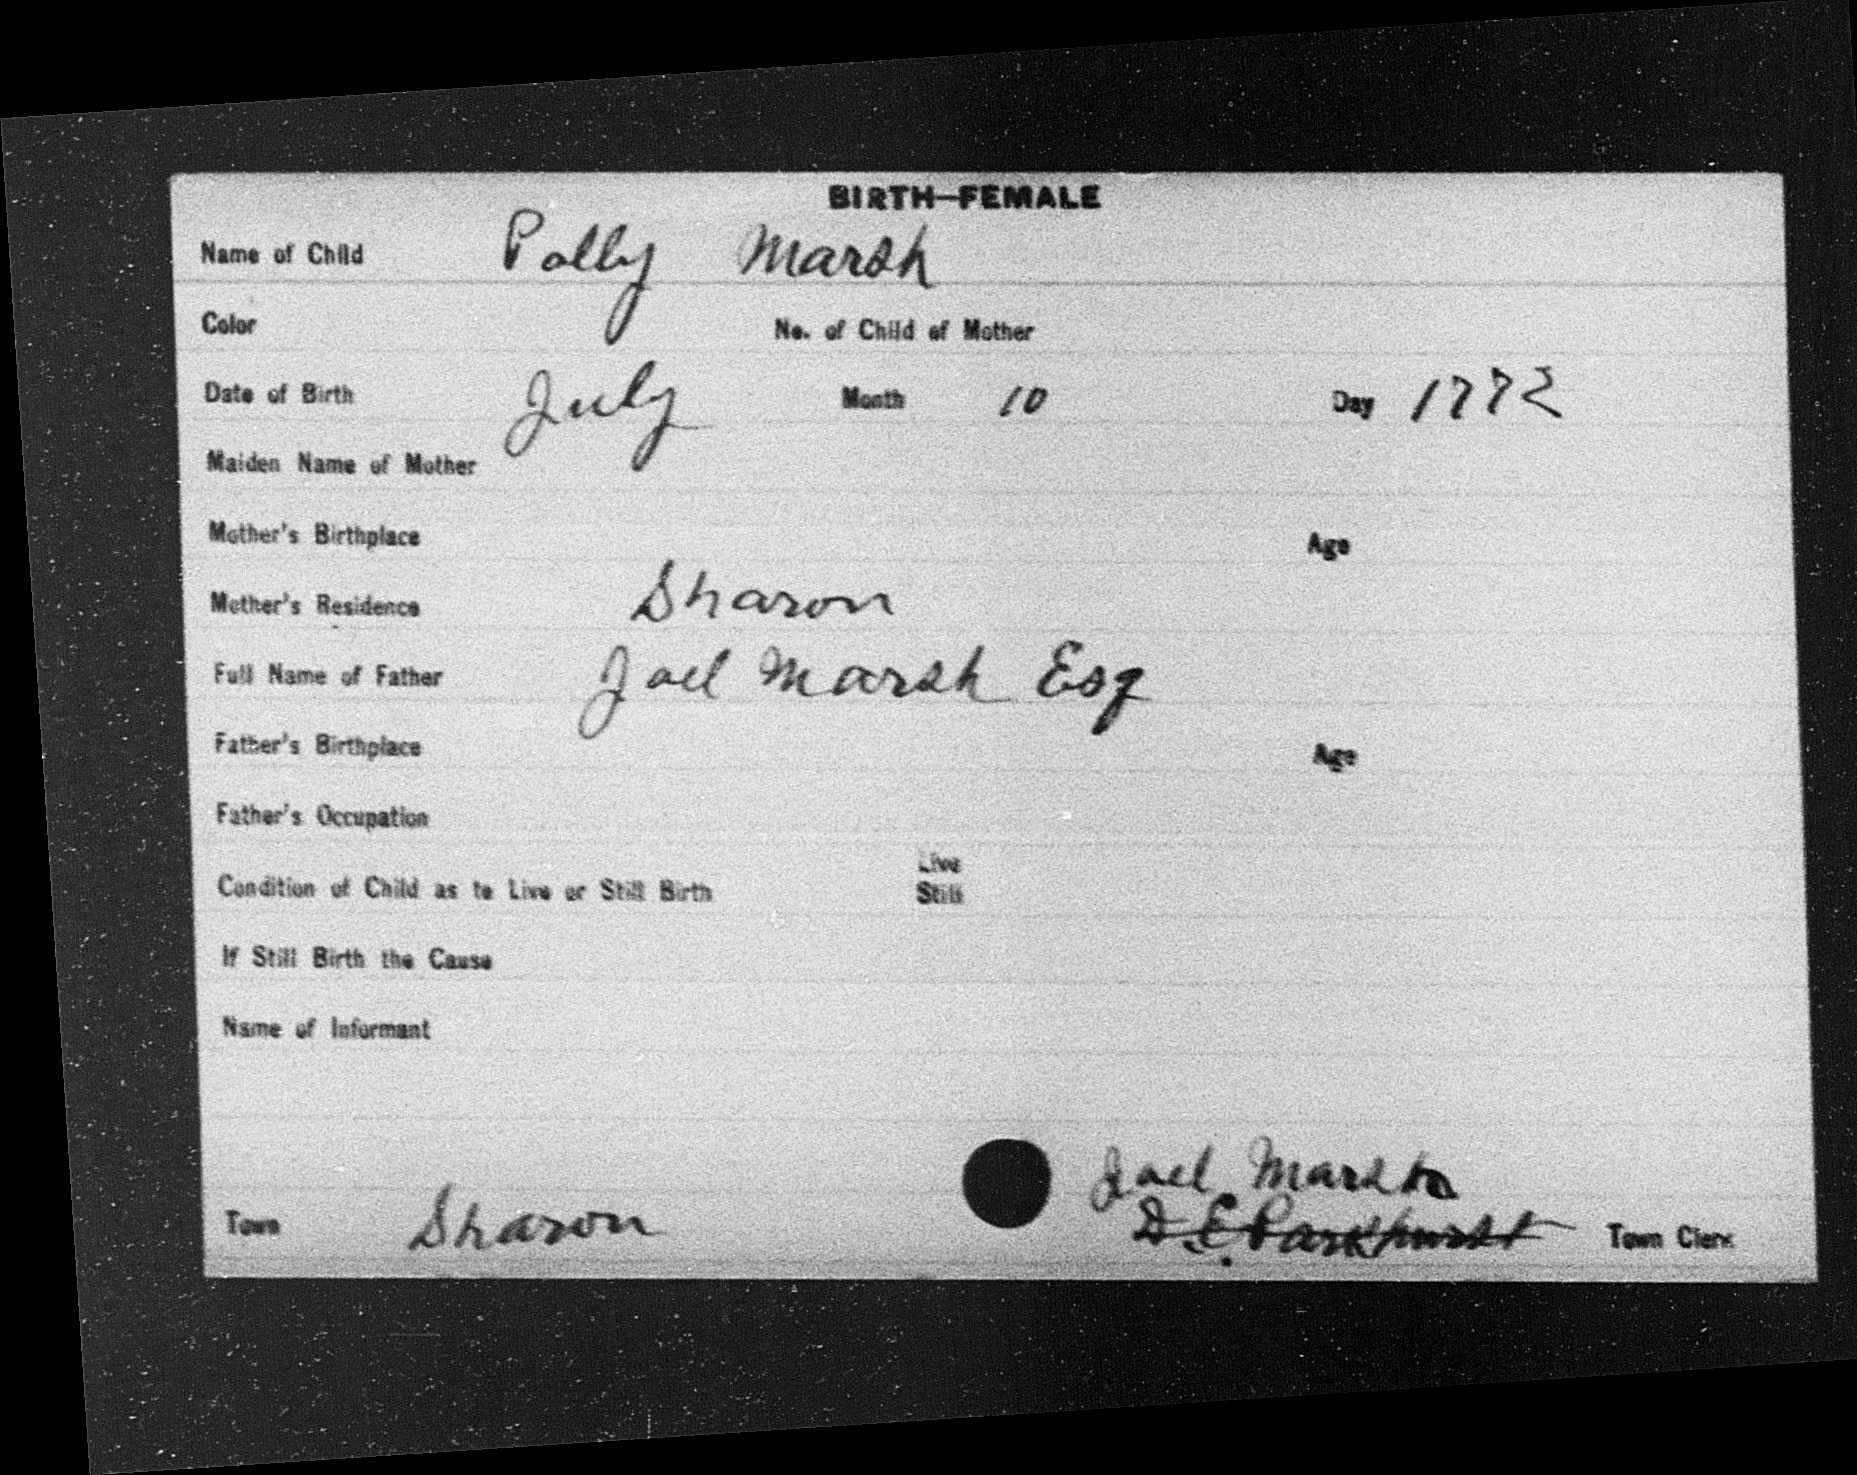 BIRTH—FEMALE
Name of Child Polly Marsh
Color No. of Child of Mother
Date of Birth July Month 10 Day 1772
Maiden Name of Mother
Mother's Birthplace Age
Mother's Residence Sharon
Full Name of Father Joel Marsh Esq
Father's Birthplace Age
Father's Occupation
Live
Condition of Child as to Live or Still Birth Still
If Still Birth the Cause
Name of Informant
Joel Marsh
Town Sharon D. E. Parkhurst Town Clerk